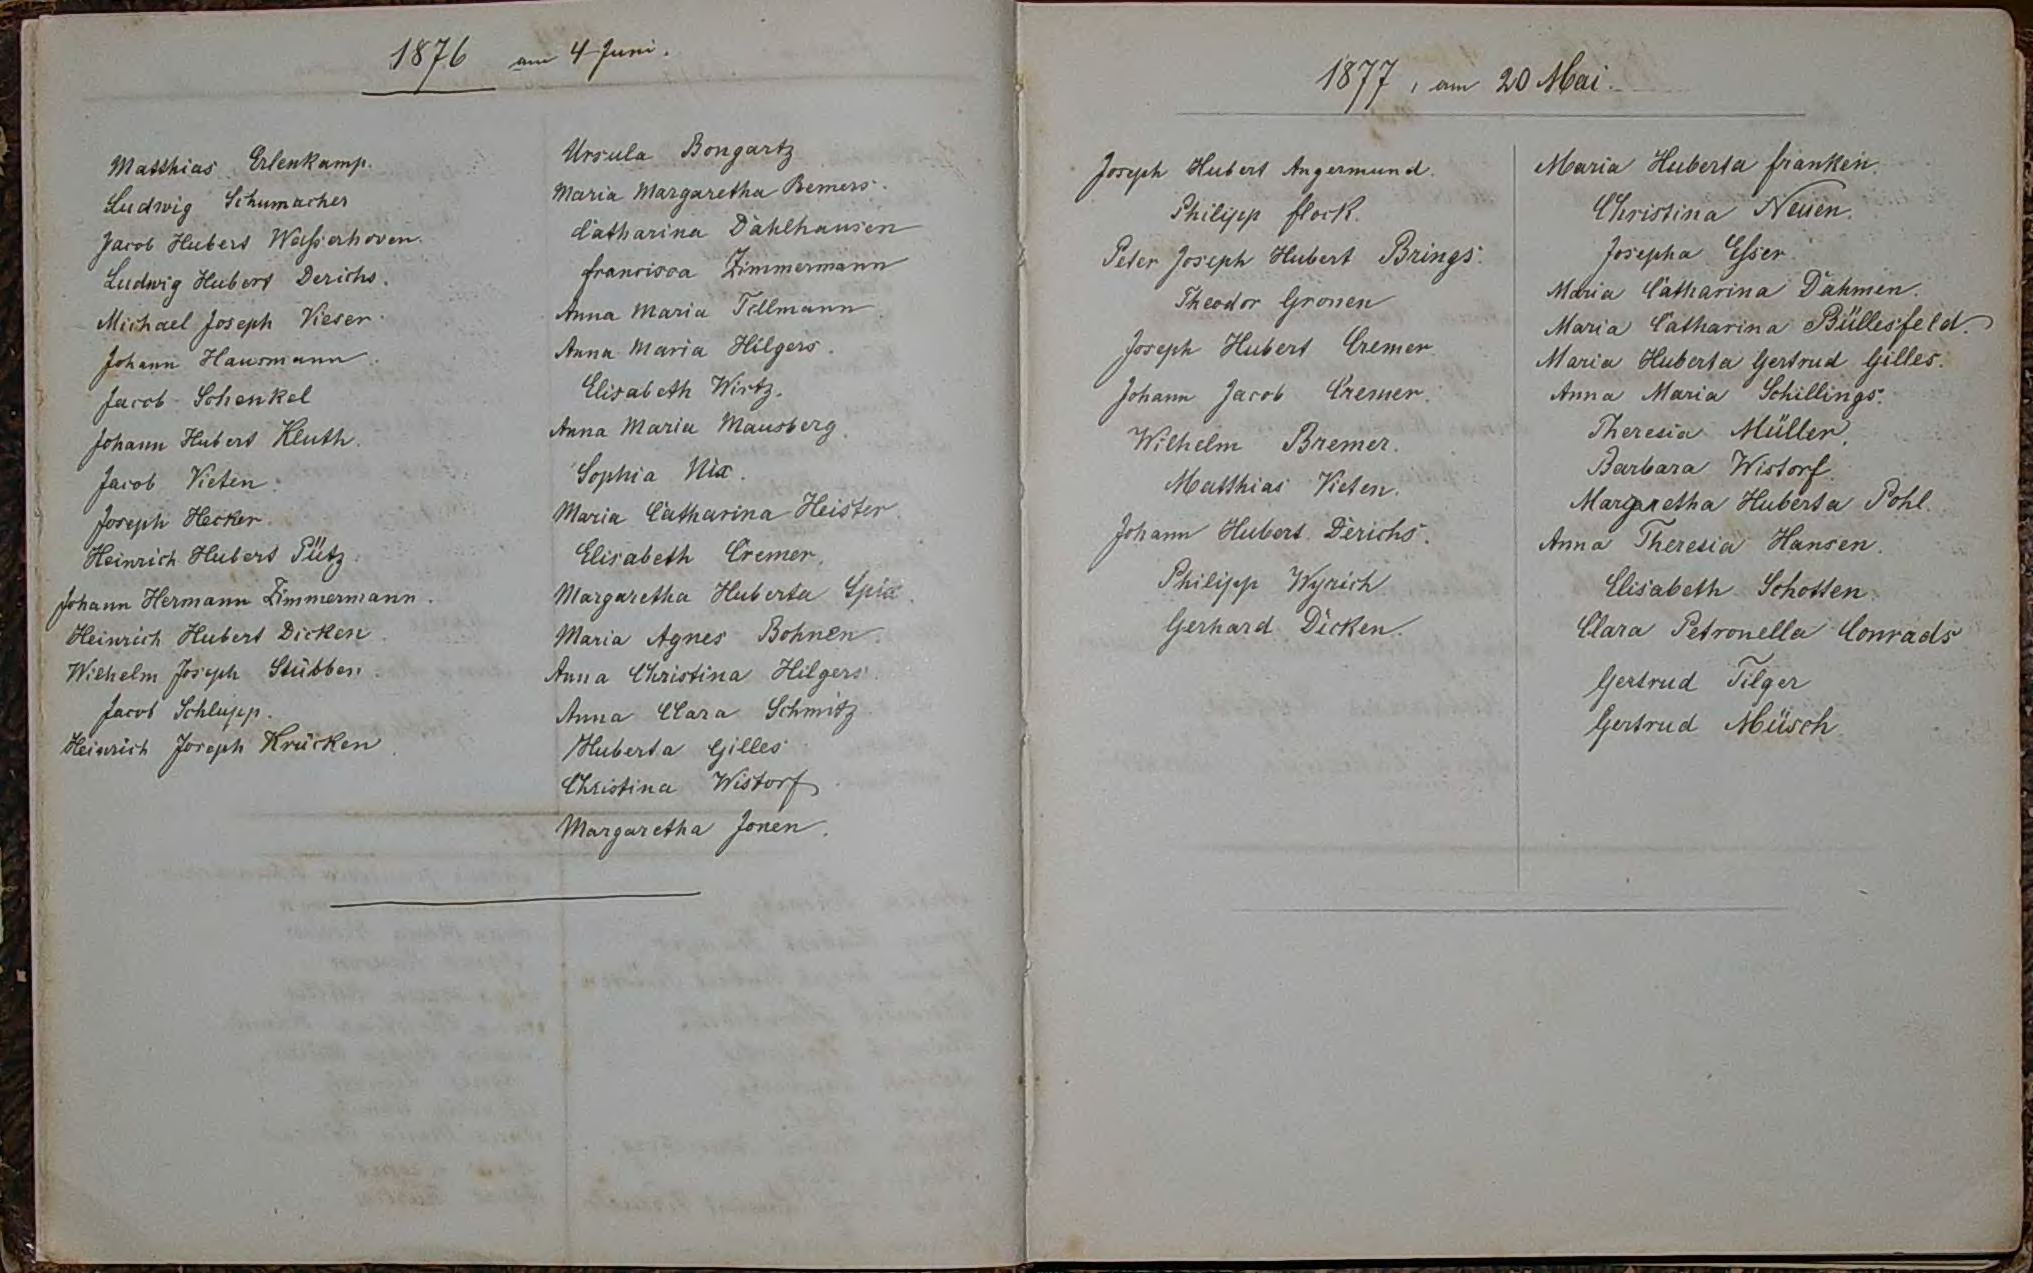 1876 am 4 Juni.
Matthias Erlenkamp.
Ludwig Schumacher
Jacob Hubert Wasserhoven.
Ludwig Hubert Derichs.
Michael Joseph Vieser.
Johann Hausmann.
Jacob Schenkel
Johann Hubert Kluth.
Jacob Vieten.
Joseph Hecker.
Heinrich Hubert Pütz.
Johann Hermann Zimmermann.
Heinrich Hubert Dicken.
Wilhelm Joseph Stübben.
Jacob Schlupp.
Heinrich Joseph Krücken.
Ursula Bongartz
Maria Margaretha Bemers.
Catharina Dahlhausen
Francisca Zimmermann
Anna Maria Tillmann.
Anna Maria Hilgers.
Elisabeth Wirtz.
Anna Maria Mausberg.
Sophia Nix.
Maria Catharina Heister.
Elisabeth Cremer.
Margaretha Huberta Spix.
Maria Agnes Bohnen.
Anna Christina Hilgers.
Anna Clara Schmitz.
Huberta Gilles
Christina Wistorf
Margaretha Jonen.
1877, am 20 Mai.
Joseph Hubert Angermund.
Philipp Flock.
Peter Joseph Hubert Brings.
Theodor Gronen
Joseph Hubert Cremer.
Johann Jacob Cremer.
Wilhelm Bremer.
Matthias Vieten.
Johann Hubert Derichs.
Philipp Wyrich
Gerhard Dicken.
Maria Huberta Franken.
Christina Neuen.
Josepha Esser.
Maria Catharina Dahmen.
Maria Catharina Büllesfeld.
Maria Huberta Gertrud Gilles.
Anna Maria Schillings.
Theresia Müller.
Barbara Wistorf.
Margaretha Huberta Pohl.
Anna Theresia Hansen.
Elisabeth Schotten.
Clara Petronella Conrads
Gertrud Tilger
Gertrud Müsch.